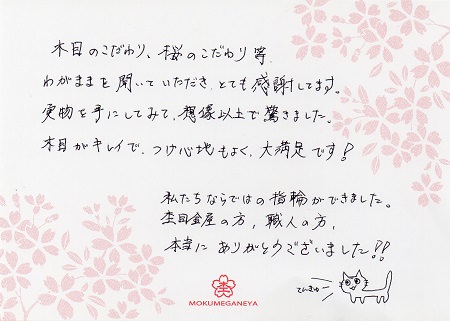 木目のこだわり、桜のこだわり等
わがままを聞いていただき、とても感謝してます。
実物を手にしてみて、想像以上で驚きました。
木目がキレイで、つけ心地もよく、大満足です!
私たちならではの指輪ができました。
杢目金屋の方、職人の方、
本当に ありがとうございました!!
MOKUMEGANEYA